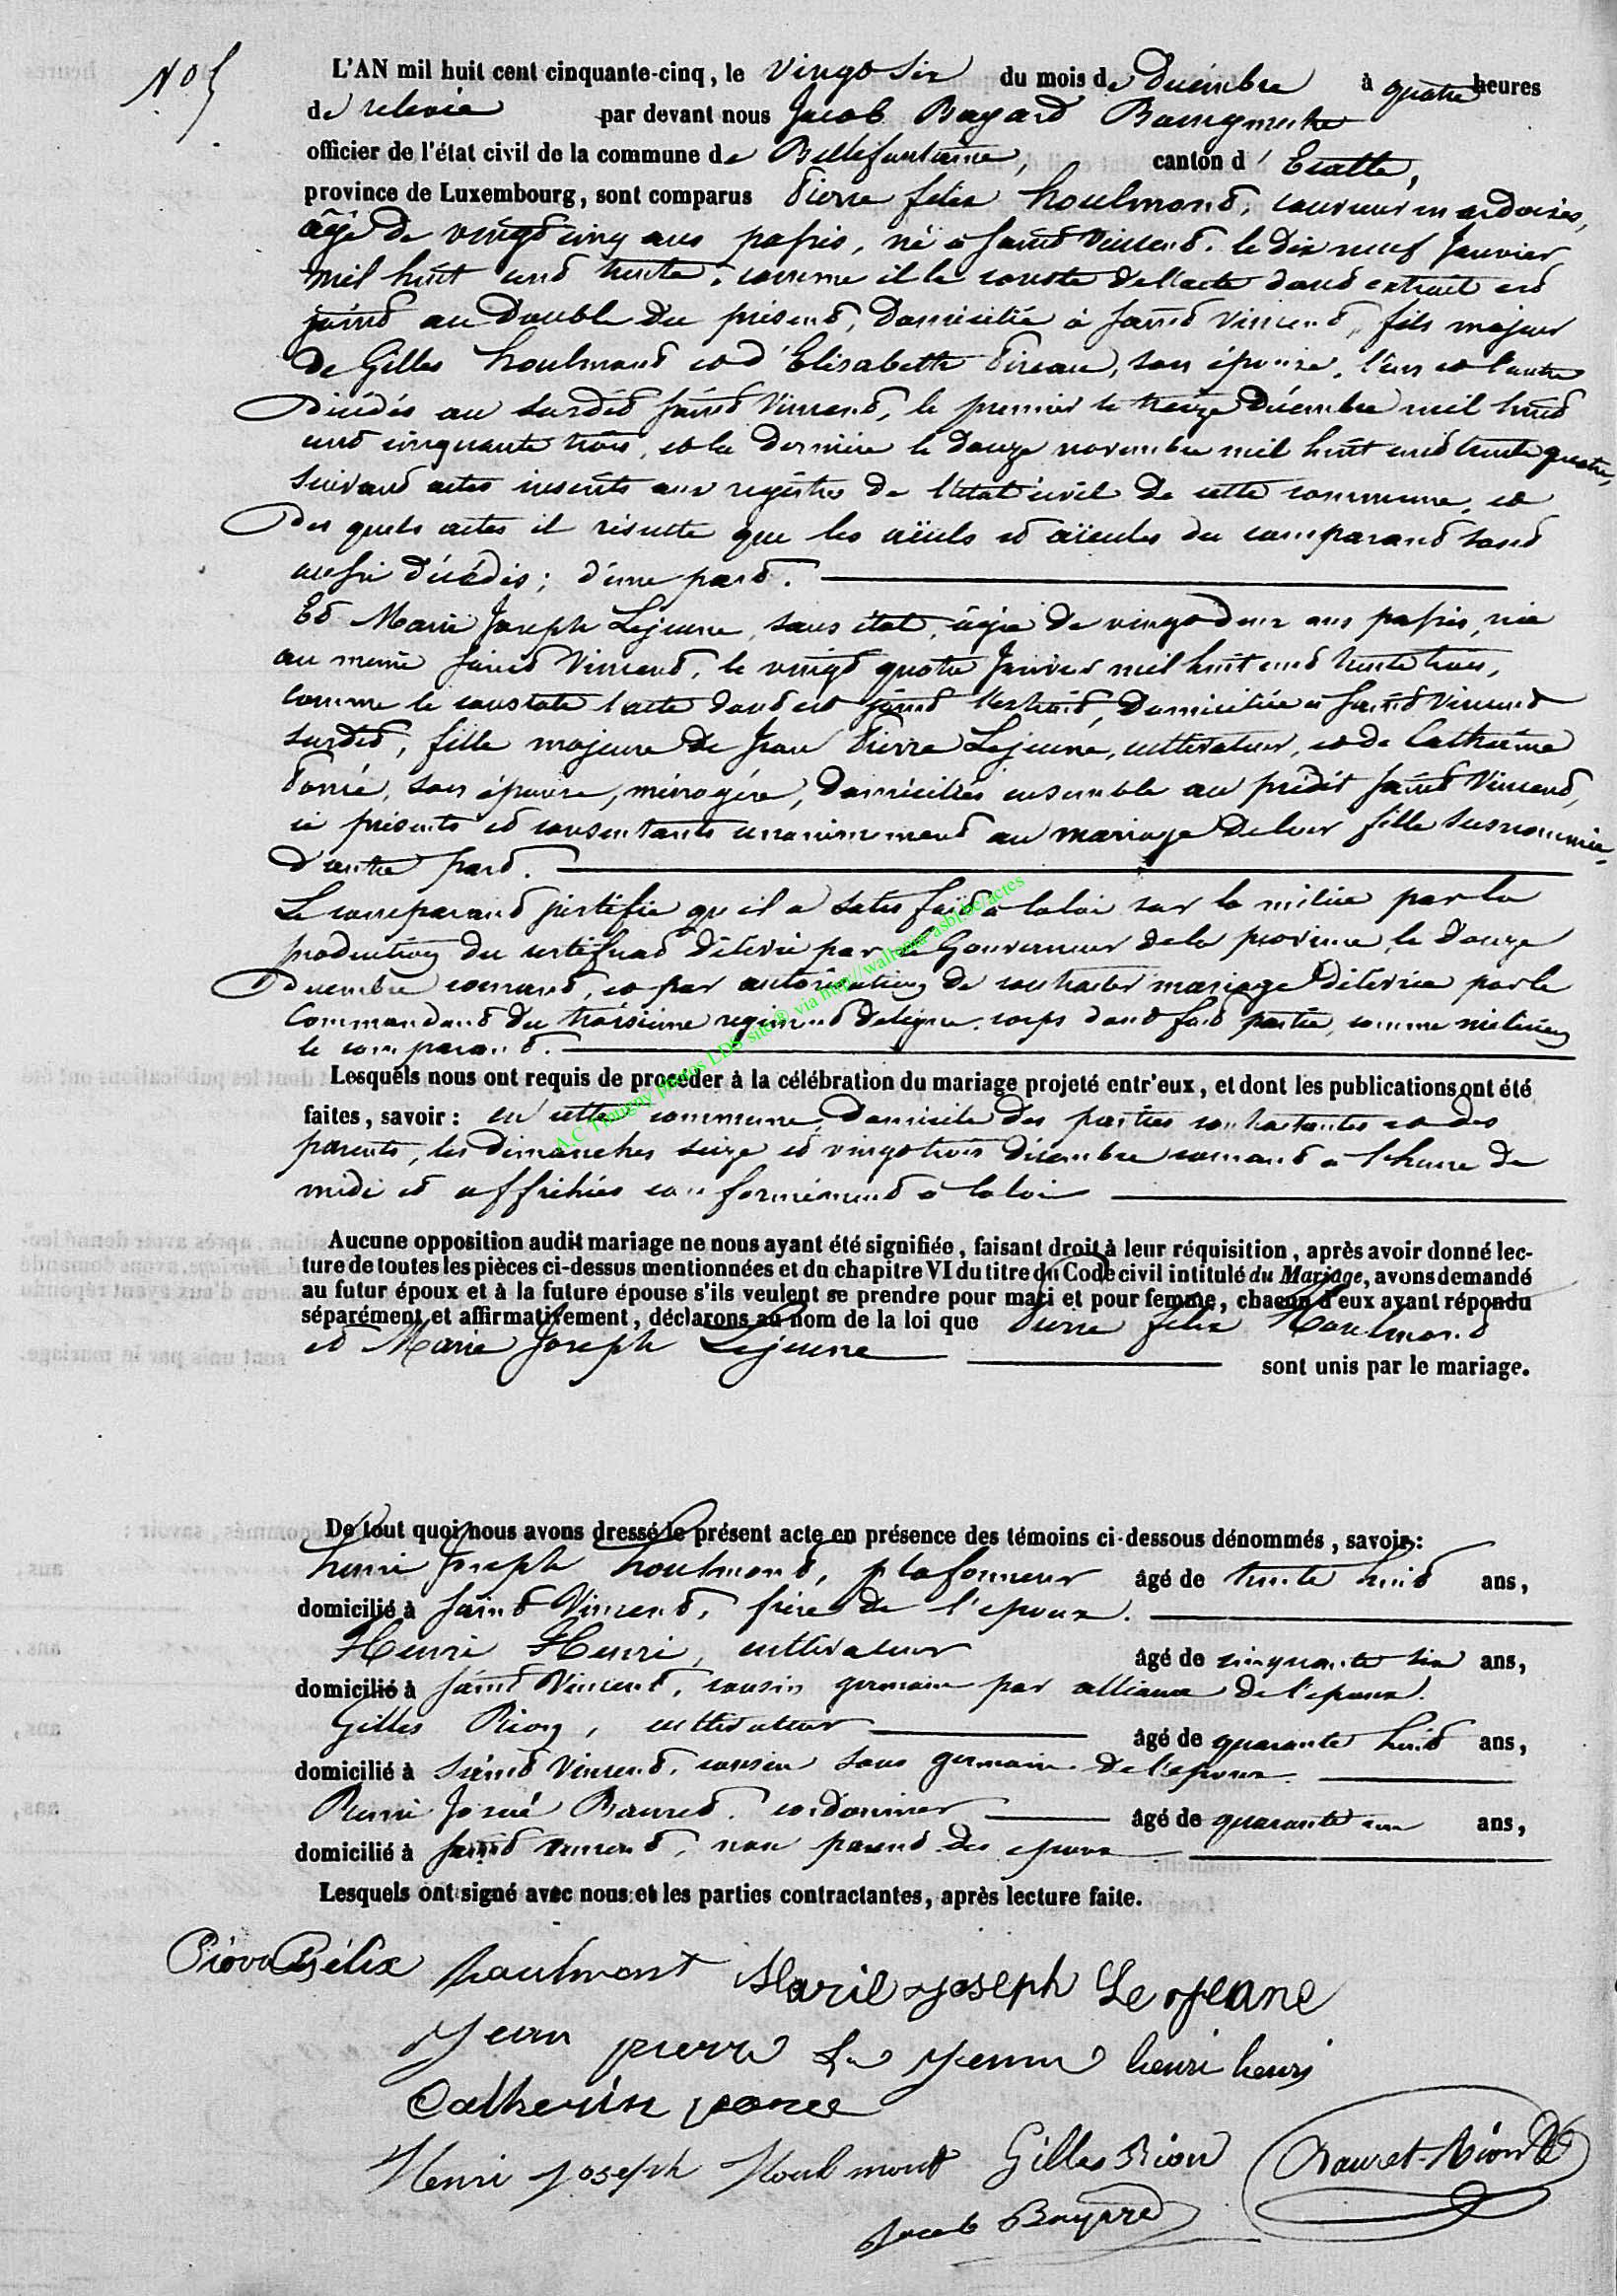 N° 5
L'AN mil huit cent cinquante-cinq, le vingt six du mois de décembre à quatre heures
de relevée par devant nous Jacob Bayard Bourgmestre
officier de l'état civil de la commune de Bellefontaine, canton d'Etalle,
province de Luxembourg, sont comparus Pierre felix houlmont, couvreur en ardoises,
âgé de vingt cinq ans passés, né à Saint Vincent, le dix neuf Janvier
mil huit cent trente, comme il le conste de l'acte dont extrait est
joint au double du présent, domicilié à Saint Vincent, fils majeur
de Gilles houlmont et d'Elisabeth Pireau, son épouse, l'un et l'autre
décédés au susdit Saint Vincent, le premier le treize Décembre mil huit
cent cinquante trois, et la dernière le douze novembre mil huit cent trente quatre,
suivant actes inscrits aux registres de l'état civil de cette commune, et
des quels actes il résulte que les aïeuls et aïeules du comparant sont
aussi décédés ; d'une part.
Et Marie Joseph Lejeune, sans état, âgée de vingt deux ans passés, née
au même Saint Vincent, le vingt quatre Janvier mil huit cent trente trois,
comme le constate l'acte dont est joint l'extrait, domiciliée à Saint Vincent
susdit, fille majeure de Jean Pierre Lejeune, cultivateur, et de Catherine
Poncé, son épouse, ménagère, domiciliés ensemble au prédit Saint Vincent,
ci présents et consentants unanimement au mariage de leur fille susnommée,
d'autre part.
Le comparant justifie qu'il a satisfait à la loi sur la milice par la
production du certificat délivré par le Gouverneur de la province, le douze
Décembre courant, et par autorisation de contracter mariage délivrée par le
Commandant du troisième régiment de ligne, corps dont fait partie, comme milicien
le comparant.
A.C Tintigny photos LDS site® via http//wallonia-asbl.be/actes
Lesquels nous ont requis de procéder à la célébration du mariage projeté entr'eux, et dont les publications ont été
faites, savoir : en cette commune, domicile des parties contractantes et des
parents, les dimanches seize et vingt trois décembre courant à l'heure de
midi et affichées conformément à la loi
Aucune opposition audit mariage ne nous ayant été signifiée, faisant droit à leur réquisition, après avoir donné lec-
ture de toutes les pièces ci-dessus mentionnées et du chapitre VI du titre du Code civil intitulé du Mariage, avons demandé
au futur époux et à la future épouse s'ils veulent se prendre pour mari et pour femme, chacun d'eux ayant répondu
séparément et affirmativement, déclarons au nom de la loi que Pierre felix Houlmont
et Marie Joseph Lejeune sont unis par le mariage.
De tout quoi nous avons dressé le présent acte en présence des témoins ci-dessous dénommés, savoir :
henri Joseph houlmont, plafonneur âgé de trente huit ans,
domicilié à Saint Vincent, frère de l'époux.
Henri Henri, cultivateur âgé de cinquante six ans,
domicilié à Saint Vincent, cousin germain par alliance de l'époux.
Gilles Rion, cultivateur âgé de quarante huit ans,
domicilié à Saint Vincent, cousin sous germain de l'époux.
Josué Bauret, cordonnier âgé de quarante un ans,
domicilié à Saint Vincent, non parent des époux
Lesquels ont signé avec nous et les parties contractantes, après lecture faite.
félix houlmont Marie joseph Le jeune
Jean pierre Le Jeune henri henri
Catherin ponce
Henri Joseph Houlmont Gilles Rion Bauret-Rion
Jacob Bayard